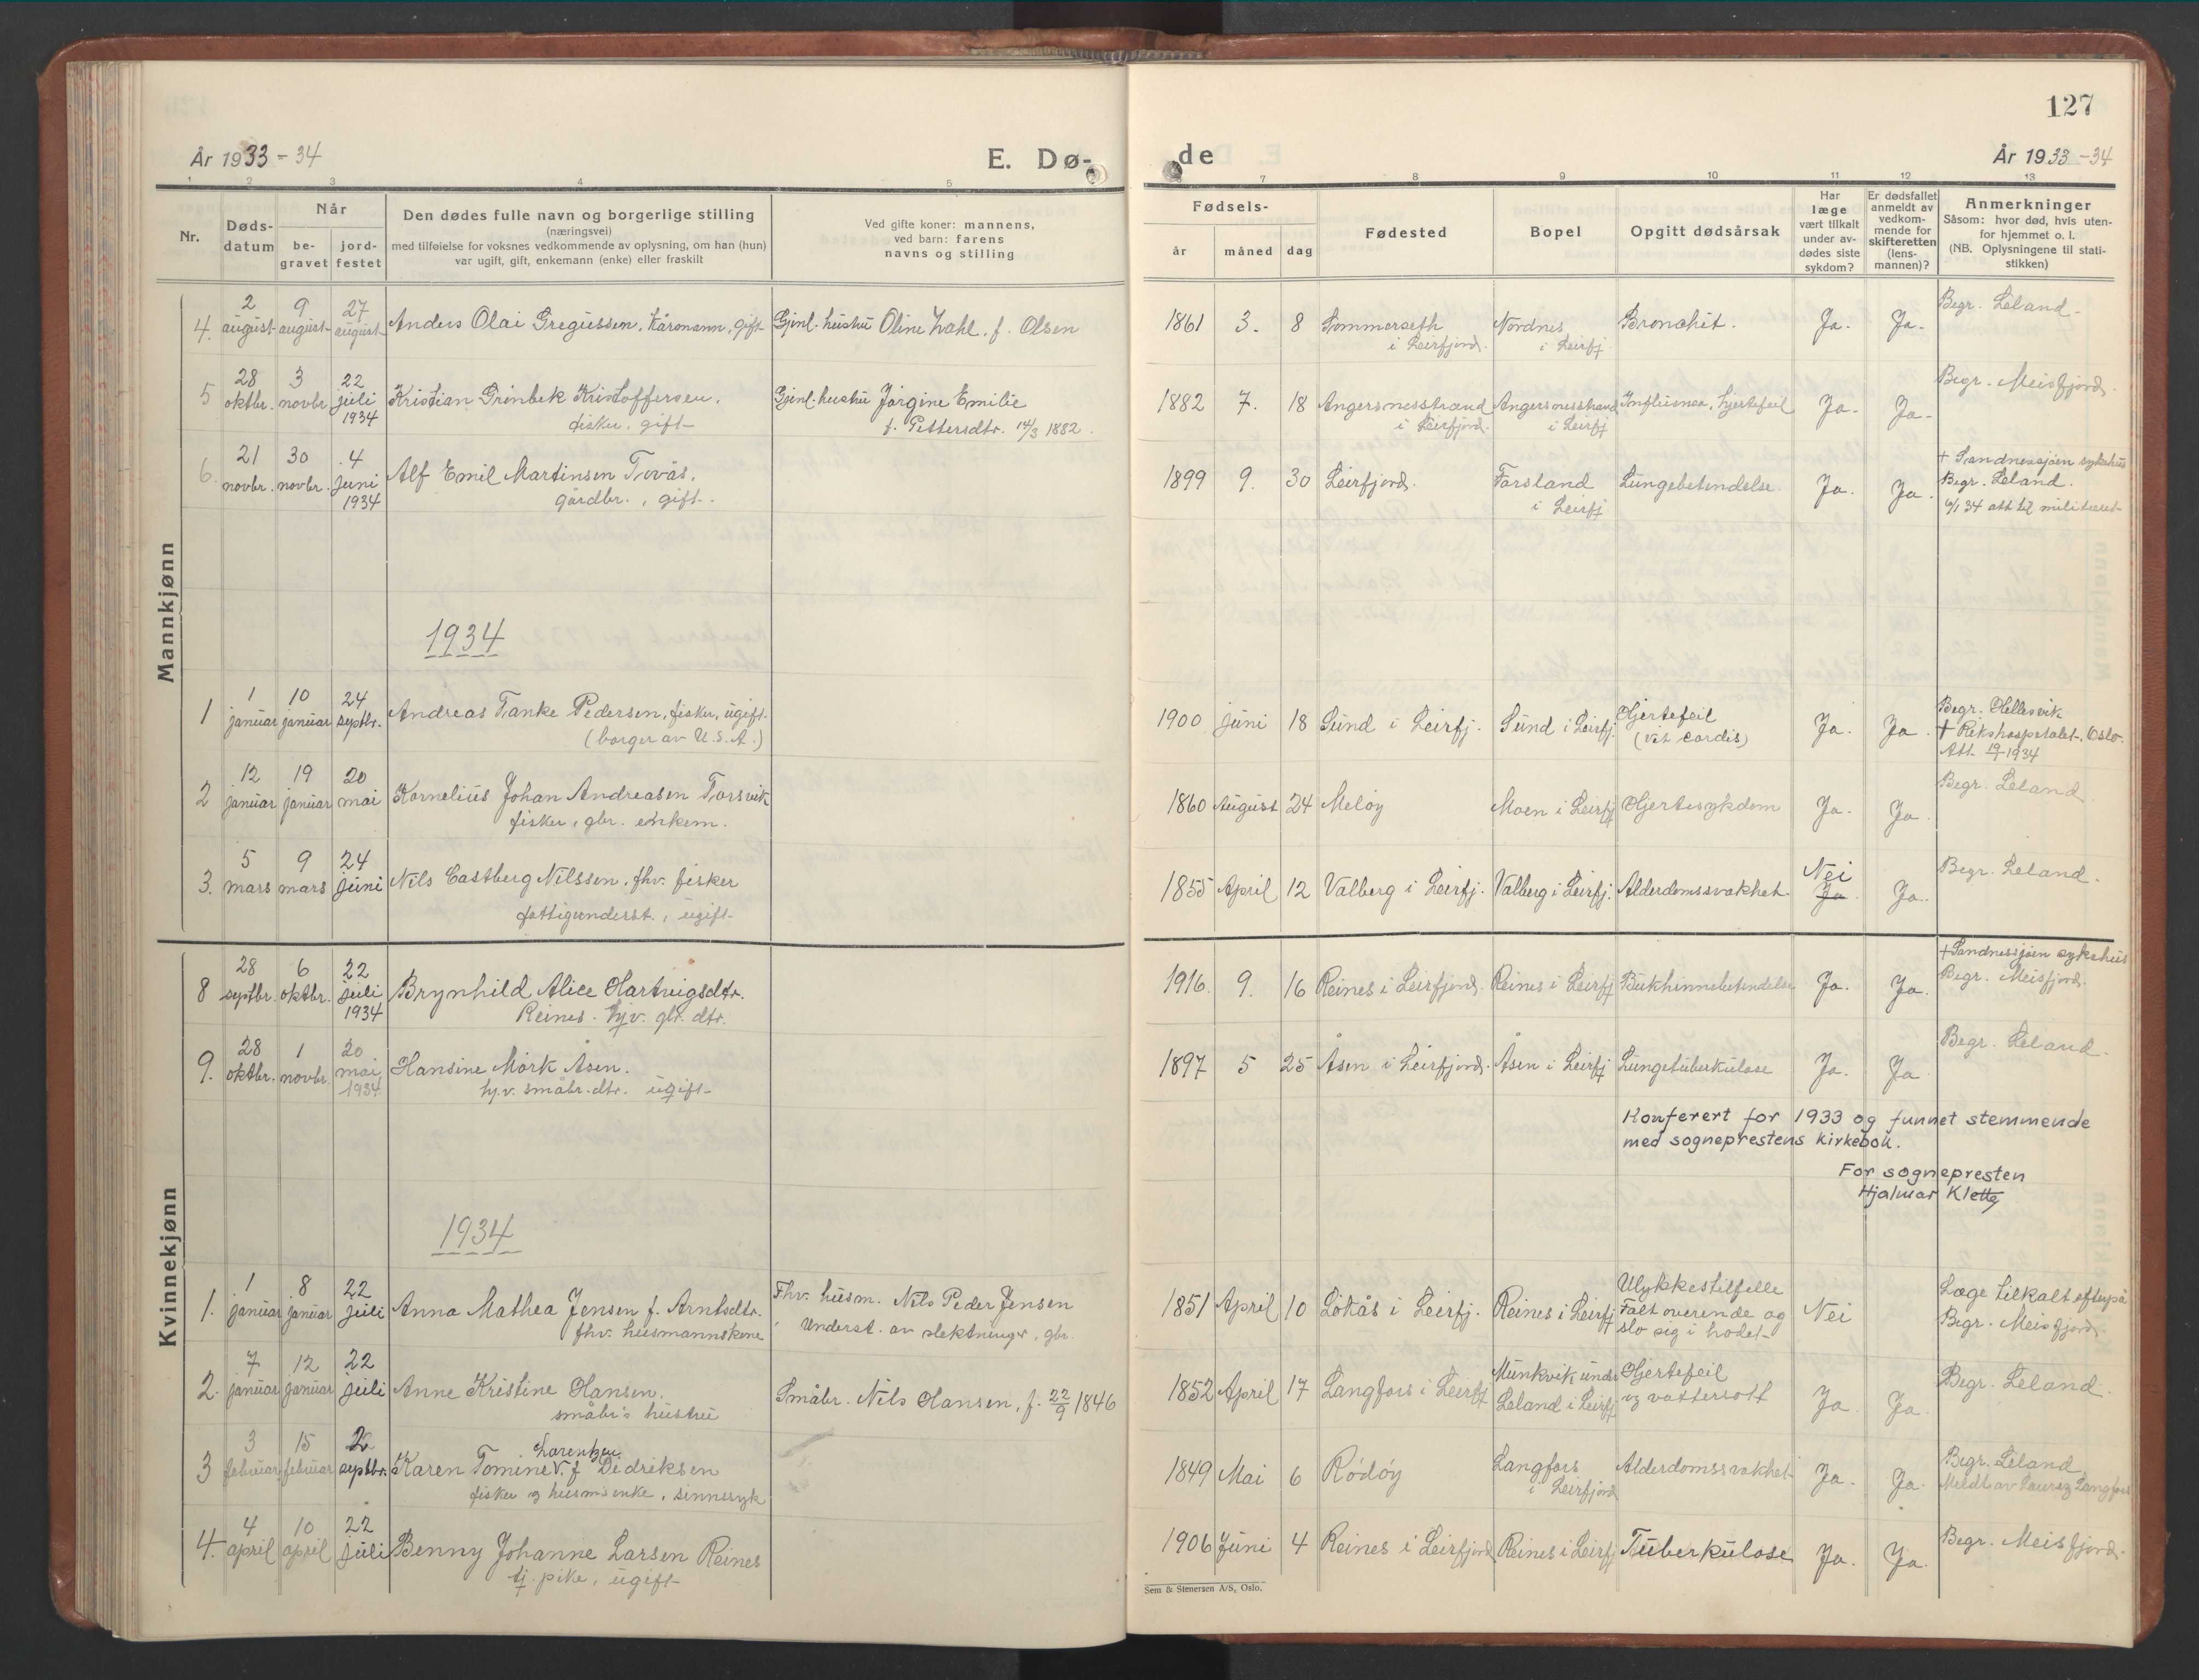 127
År 1933-34
E. Dø-
de
År 1933-34
1 2 3 4 5
7 8 9 10 11 12 13
Nr.
Døds-
datum
Når
be-
gravet
jord-
festet
Den dødes fulle navn og borgerlige stilling
(næringsvei)
med tilføielse for voksnes vedkommende av oplysning, om han (hun)
var ugift, gift, enkemann (enke) eller fraskilt
Ved gifte koner: mannens,
ved barn: farens
navns og stilling
Fødsels-
år
måned
dag
Fødested
Bopel
Opgitt dødsårsak
Har
læge
vært tilkalt
under av-
dødes siste
sykdom?
Er dødsfallet
anmeldt av
vedkom-
mende for
skifteretten
(lens-
mannen)?
Anmerkninger
Såsom: hvor død, hvis uten-
for hjemmet o. l.
(NB. Oplysningene til stati-
stikken)
Mannkjønn
4. 2 august 9 august 27 august Anders Olai Gregussen, Kårmann, gift Gjenl. hustru Oline Wahl, f. Olsen 1861 3. 8 Sommerseth i Leirfjord. Nordnes i Leirfj. Bronchit. Ja. Ja. Begr. Leland.
5 28 oktbr. 3 novbr. 22 juli 1934 Kristian Grönbek Kristoffersen, Gjenl. hustru Jørgine Emilie 1882 7. 18 Angersnesstrand i Leirfjord. Angersnesstrand i Leirfj Influensa, hjertefeil Ja. Ja. Begr. Meisfjord.
fisker, gift f. Pettersdtr. 14/3 1882.
6. 21 novbr. 30 novbr. 4 juni 1934 Alf Emil Martinsen Tverås, 1899 9. 30 Leirfjord. Forsland i Leirfj Lungebetendelse. Ja. Ja. + Sandnessjøen sykehus
gårdbr., gift. Begr. Leland.
6/1 34 att til militæret
1934
1 1 januar 10 januar 24 septbr. Andreas Tanke Pedersen, fisker, ugift. 1900 juni 18 Sund i Leirfj. Sund i Leirfj. Hjertefeil Ja. Ja. Begr. Hellesvik
(borger av U.S.A.) (vit cordis) + Rikshospitalet, Oslo.
Att. 19/ 1934
2 12 januar 19 januar 20 mai Kornelius Johan Andreasen Torsvik 1860 August 24 Meløy Moen i Leirfj Hjertesykdom Ja. Ja. Begr. Leland
fisker, gbr. enkem.
3. 5 mars 9 mars 24 juni Nils Castberg Nilssen, fhv. fisker 1855 April 12 Valberg i Leirfj. Valberg i Leirfj. Alderdomssvakhet Nei Ja Ja. Begr. Leland.
fattigunderst., ugift
Kvinnekjønn
8 28 septbr. 6 oktbr. 22 juli 1934 Brynhild Alice Hartvigsdtr. 1916. 9. 16 Reines i Leirfjord. Reines i Leirfj Bukhinnebetendelse Ja. Ja. + Sandnessjøen sykehus
Reines. hjv. gbr. dtr. Begr. Meisfjord.
9. 28 oktbr. 1 novbr. 20 mai 1934 Hansine Mørk Åsen. 1897 5 25 Åsen i Leirfjord. Åsen i Leirfj Lungetuberkulose Ja. Ja Begr. Leland.
hj.v. småbr. dtr. ugift
Konferert for 1933 og funnet stemmende
med sogneprestens kirkebok.
For sognepresten
Hjalmar Klette
1934
1. 1 januar 8 januar 22 juli Anna Mathea Jensen f. Arntsdtr. Fhv. husm. Nils Peder Jensen 1851 April 10 Løkås i Leirfj. Reines i Leirfj Ulykkestilfelle Falt overende og slo sig i hodet Nei Læge tilkalt efterpå
fhv. husmannskone Underst. av slektninger, gbr. Begr. Meisfjord
2. 7 januar 12 januar 22 juli Anne Kristine Hansen. Småbr. Nils Hansen, f. 22/9 1846 1852 April 17 Langfors i Leirfj Munkvik under Leland i Leirfj Hjertefeil og vattersott Ja. Ja. Begr. Leland.
småbr's hustru
3 3 februar 15 februar 2 septbr. Karen Tomine Lorentzen V. f. Didriksen 1849 Mai 6 Rödöy Langfors i Leirfjord Alderdomssvakhet Ja. Ja. Begr. Leland.
fisker og husm's enke, sinnssyk Meldt av Langfors
4. 4 april 10 april 22 juli Benny Johanne Larsen Reines 1906 Juni 4 Reines i Leirfjord Reines i Leirfj Tuberkulose Ja. Ja. Begr. Meisfjord.
tj. pike, ugift
Sem & Stenersen A/S, Oslo.